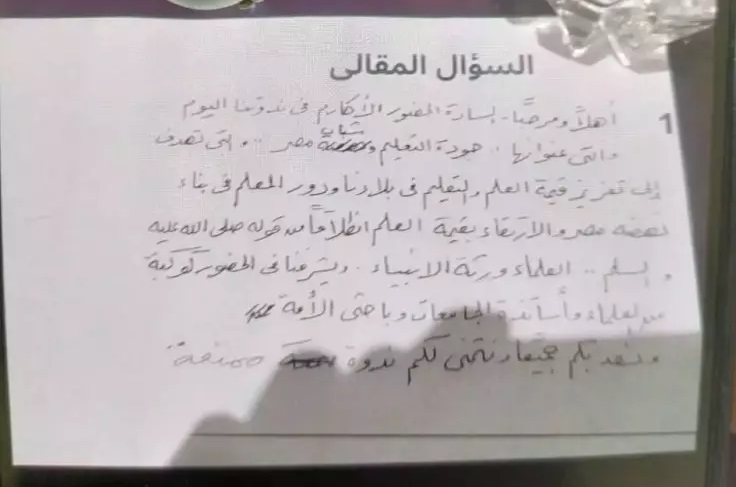 السؤال المقالى
1 أهلاً ومرحبًا بالسادة الحضور الأكارم فى ندوتنا اليوم
والتى عنوانها .. جودة التعليم وشباب مصر .. والتى تهدف
إلى تعزيز قيمة العلم والتعليم فى بلادنا ودور المعلم فى بناء
نهضة مصر والارتقاء بقيمة العلم انطلاقًا من قوله صلى الله عليه
و السلم .. العلماء ورثة الانبياء .. ويشرفنا فى الحضور كوكبة
من العلماء وأساتذة الجامعات وباحثى الأمة
ونسعد بكم جميعًا ونتمنى لكم ندوة ممتعة